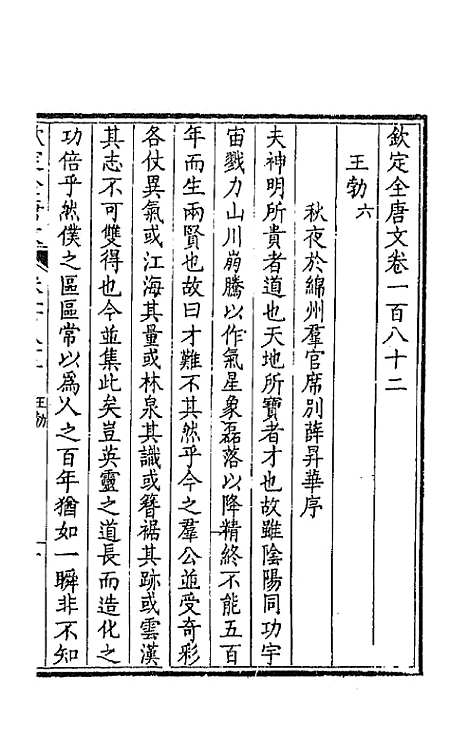 欽定全唐文卷一百八十二
王勃六
秋夜於綿州羣官席別薛昇華序
夫神明所貴者道也天地所寶者才也故雖陰陽同功宇
宙戮力山川崩騰以作氣星象磊落以降精終不能五百
年而生兩賢也故曰才難不其然乎今之羣公並受奇彩
各仗異氣或江海其量或林泉其識或簪裾其跡或雲漢
其志不可雙得也今並集此矣豈英靈之道長而造化之
功倍乎然僕之區區常以爲人之百年猶如一瞬非不知
王勃